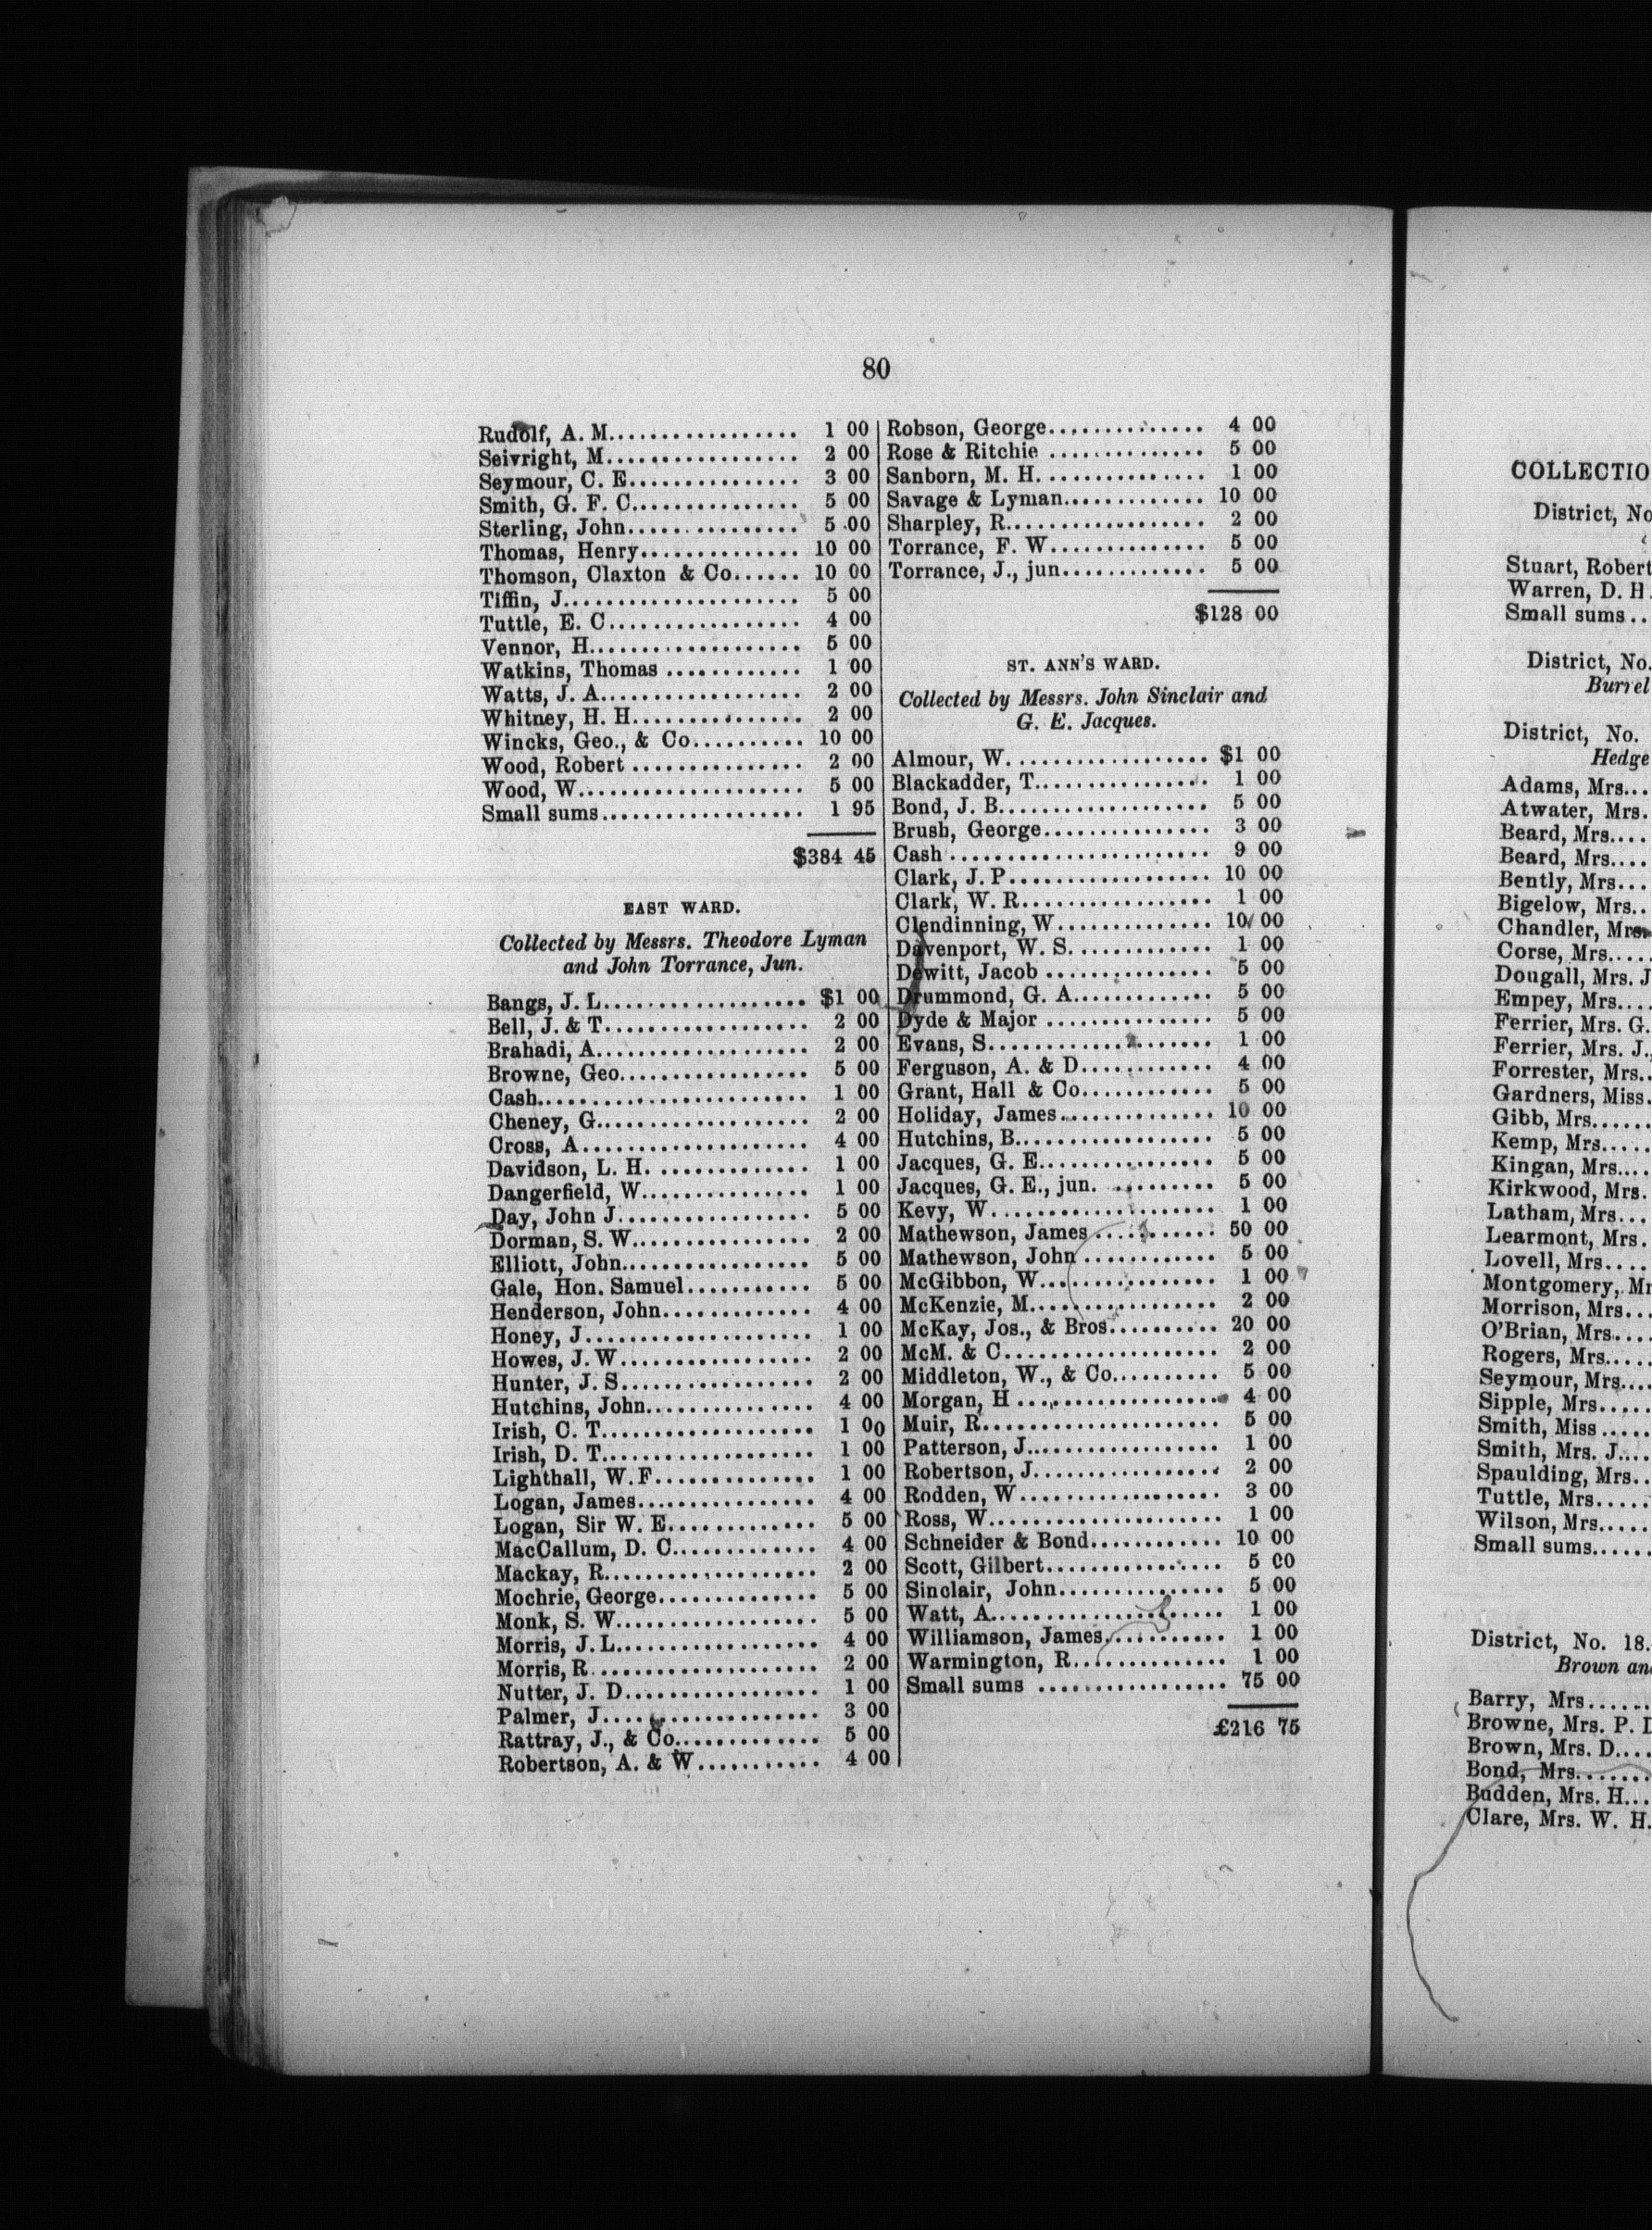 80
Rudolf, A. M................. 1 00
Seivright, M................. 2 00
Seymour, C. E............... 3 00
Smith, G. F. C.............. 5 00
Sterling, John............... 5 00
Thomas, Henry.............. 10 00
Thomson, Claxton & Co...... 10 00
Tiffin, J..................... 5 00
Tuttle, E. C................. 4 00
Vennor, H................... 5 00
Watkins, Thomas ............ 1 00
Watts, J. A.................. 2 00
Whitney, H. H............... 2 00
Wincks, Geo., & Co.......... 10 00
Wood, Robert ............... 2 00
Wood, W.................... 5 00
Small sums.................. 1 95
$384 45
EAST WARD.
Collected by Messrs. Theodore Lyman
and John Torrance, Jun.
Bangs, J. L.................. $1 00
Bell, J. & T.................. 2 00
Brahadi, A................... 2 00
Browne, Geo................. 5 00
Cash........................ 1 00
Cheney, G................... 2 00
Cross, A.................... 4 00
Davidson, L. H. ............. 1 00
Dangerfield, W.............. 1 00
Day, John J................. 5 00
Dorman, S. W............... 2 00
Elliott, John................ 5 00
Gale, Hon. Samuel........... 5 00
Henderson, John............ 4 00
Honey, J.................... 1 00
Howes, J. W................. 2 00
Hunter, J. S................. 2 00
Hutchins, John.............. 4 00
Irish, C. T................... 1 00
Irish, D. T................... 1 00
Lighthall, W. F.............. 1 00
Logan, James................ 4 00
Logan, Sir W. E............. 5 00
MacCallum, D. C............ 4 00
Mackay, R................... 2 00
Mochrie, George............. 5 00
Monk, S. W................. 5 00
Morris, J. L.................. 4 00
Morris, R.................... 2 00
Nutter, J. D................. 1 00
Palmer, J................... 3 00
Rattray, J., & Co............ 5 00
Robertson, A. & W........... 4 00
Robson, George.............. 4 00
Rose & Ritchie .............. 5 00
Sanborn, M. H. .............. 1 00
Savage & Lyman............. 10 00
Sharpley, R.................. 2 00
Torrance, F. W.............. 5 00
Torrance, J., jun............. 5 00
$128 00
ST. ANN'S WARD.
Collected by Messrs. John Sinclair and
G. E. Jacques.
Almour, W................... $1 00
Blackadder, T................ 1 00
Bond, J. B................... 5 00
Brush, George............... 3 00
Cash ....................... 9 00
Clark, J. P.................. 10 00
Clark, W. R................. 1 00
Clendinning, W.............. 10 00
Davenport, W. S. ............ 1 00
Dewitt, Jacob ............... 5 00
Drummond, G. A............. 5 00
Dyde & Major ............... 5 00
Evans, S.................... 1 00
Ferguson, A. & D............ 4 00
Grant, Hall & Co............ 5 00
Holiday, James.............. 10 00
Hutchins, B.................. 5 00
Jacques, G. E................ 5 00
Jacques, G. E., jun. .......... 5 00
Kevy, W.................... 1 00
Mathewson, James ........... 50 00
Mathewson, John ............ 5 00
McGibbon, W................ 1 00
McKenzie, M................. 2 00
McKay, Jos., & Bros.......... 20 00
McM. & C................... 2 00
Middleton, W., & Co.......... 5 00
Morgan, H .................. 4 00
Muir, R..................... 5 00
Patterson, J.................. 1 00
Robertson, J................. 2 00
Rodden, W.................. 3 00
Ross, W..................... 1 00
Schneider & Bond............ 10 00
Scott, Gilbert................ 5 00
Sinclair, John................ 5 00
Watt, A..................... 1 00
Williamson, James............ 1 00
Warmington, R.............. 1 00
Small sums ................. 75 00
£216 75
COLLECTIO
District, No
Stuart, Robert
Warren, D. H.
Small sums..
District, No.
Burrel
District, No.
Hedge
Adams, Mrs...
Atwater, Mrs.
Beard, Mrs....
Beard, Mrs....
Bently, Mrs...
Bigelow, Mrs..
Chandler, Mrs.
Corse, Mrs....
Dougall, Mrs. J
Empey, Mrs....
Ferrier, Mrs. G.
Ferrier, Mrs. J.,
Forrester, Mrs..
Gardners, Miss.
Gibb, Mrs......
Kemp, Mrs.....
Kingan, Mrs....
Kirkwood, Mrs.
Latham, Mrs...
Learmont, Mrs.
Lovell, Mrs....
Montgomery, Mr
Morrison, Mrs...
O'Brian, Mrs....
Rogers, Mrs.....
Seymour, Mrs....
Sipple, Mrs.....
Smith, Miss .....
Smith, Mrs. J....
Spaulding, Mrs..
Tuttle, Mrs.....
Wilson, Mrs.....
Small sums......
District, No. 18.
Brown an
Barry, Mrs......
Browne, Mrs. P. D
Brown, Mrs. D....
Bond, Mrs.......
Budden, Mrs. H...
Clare, Mrs. W. H.